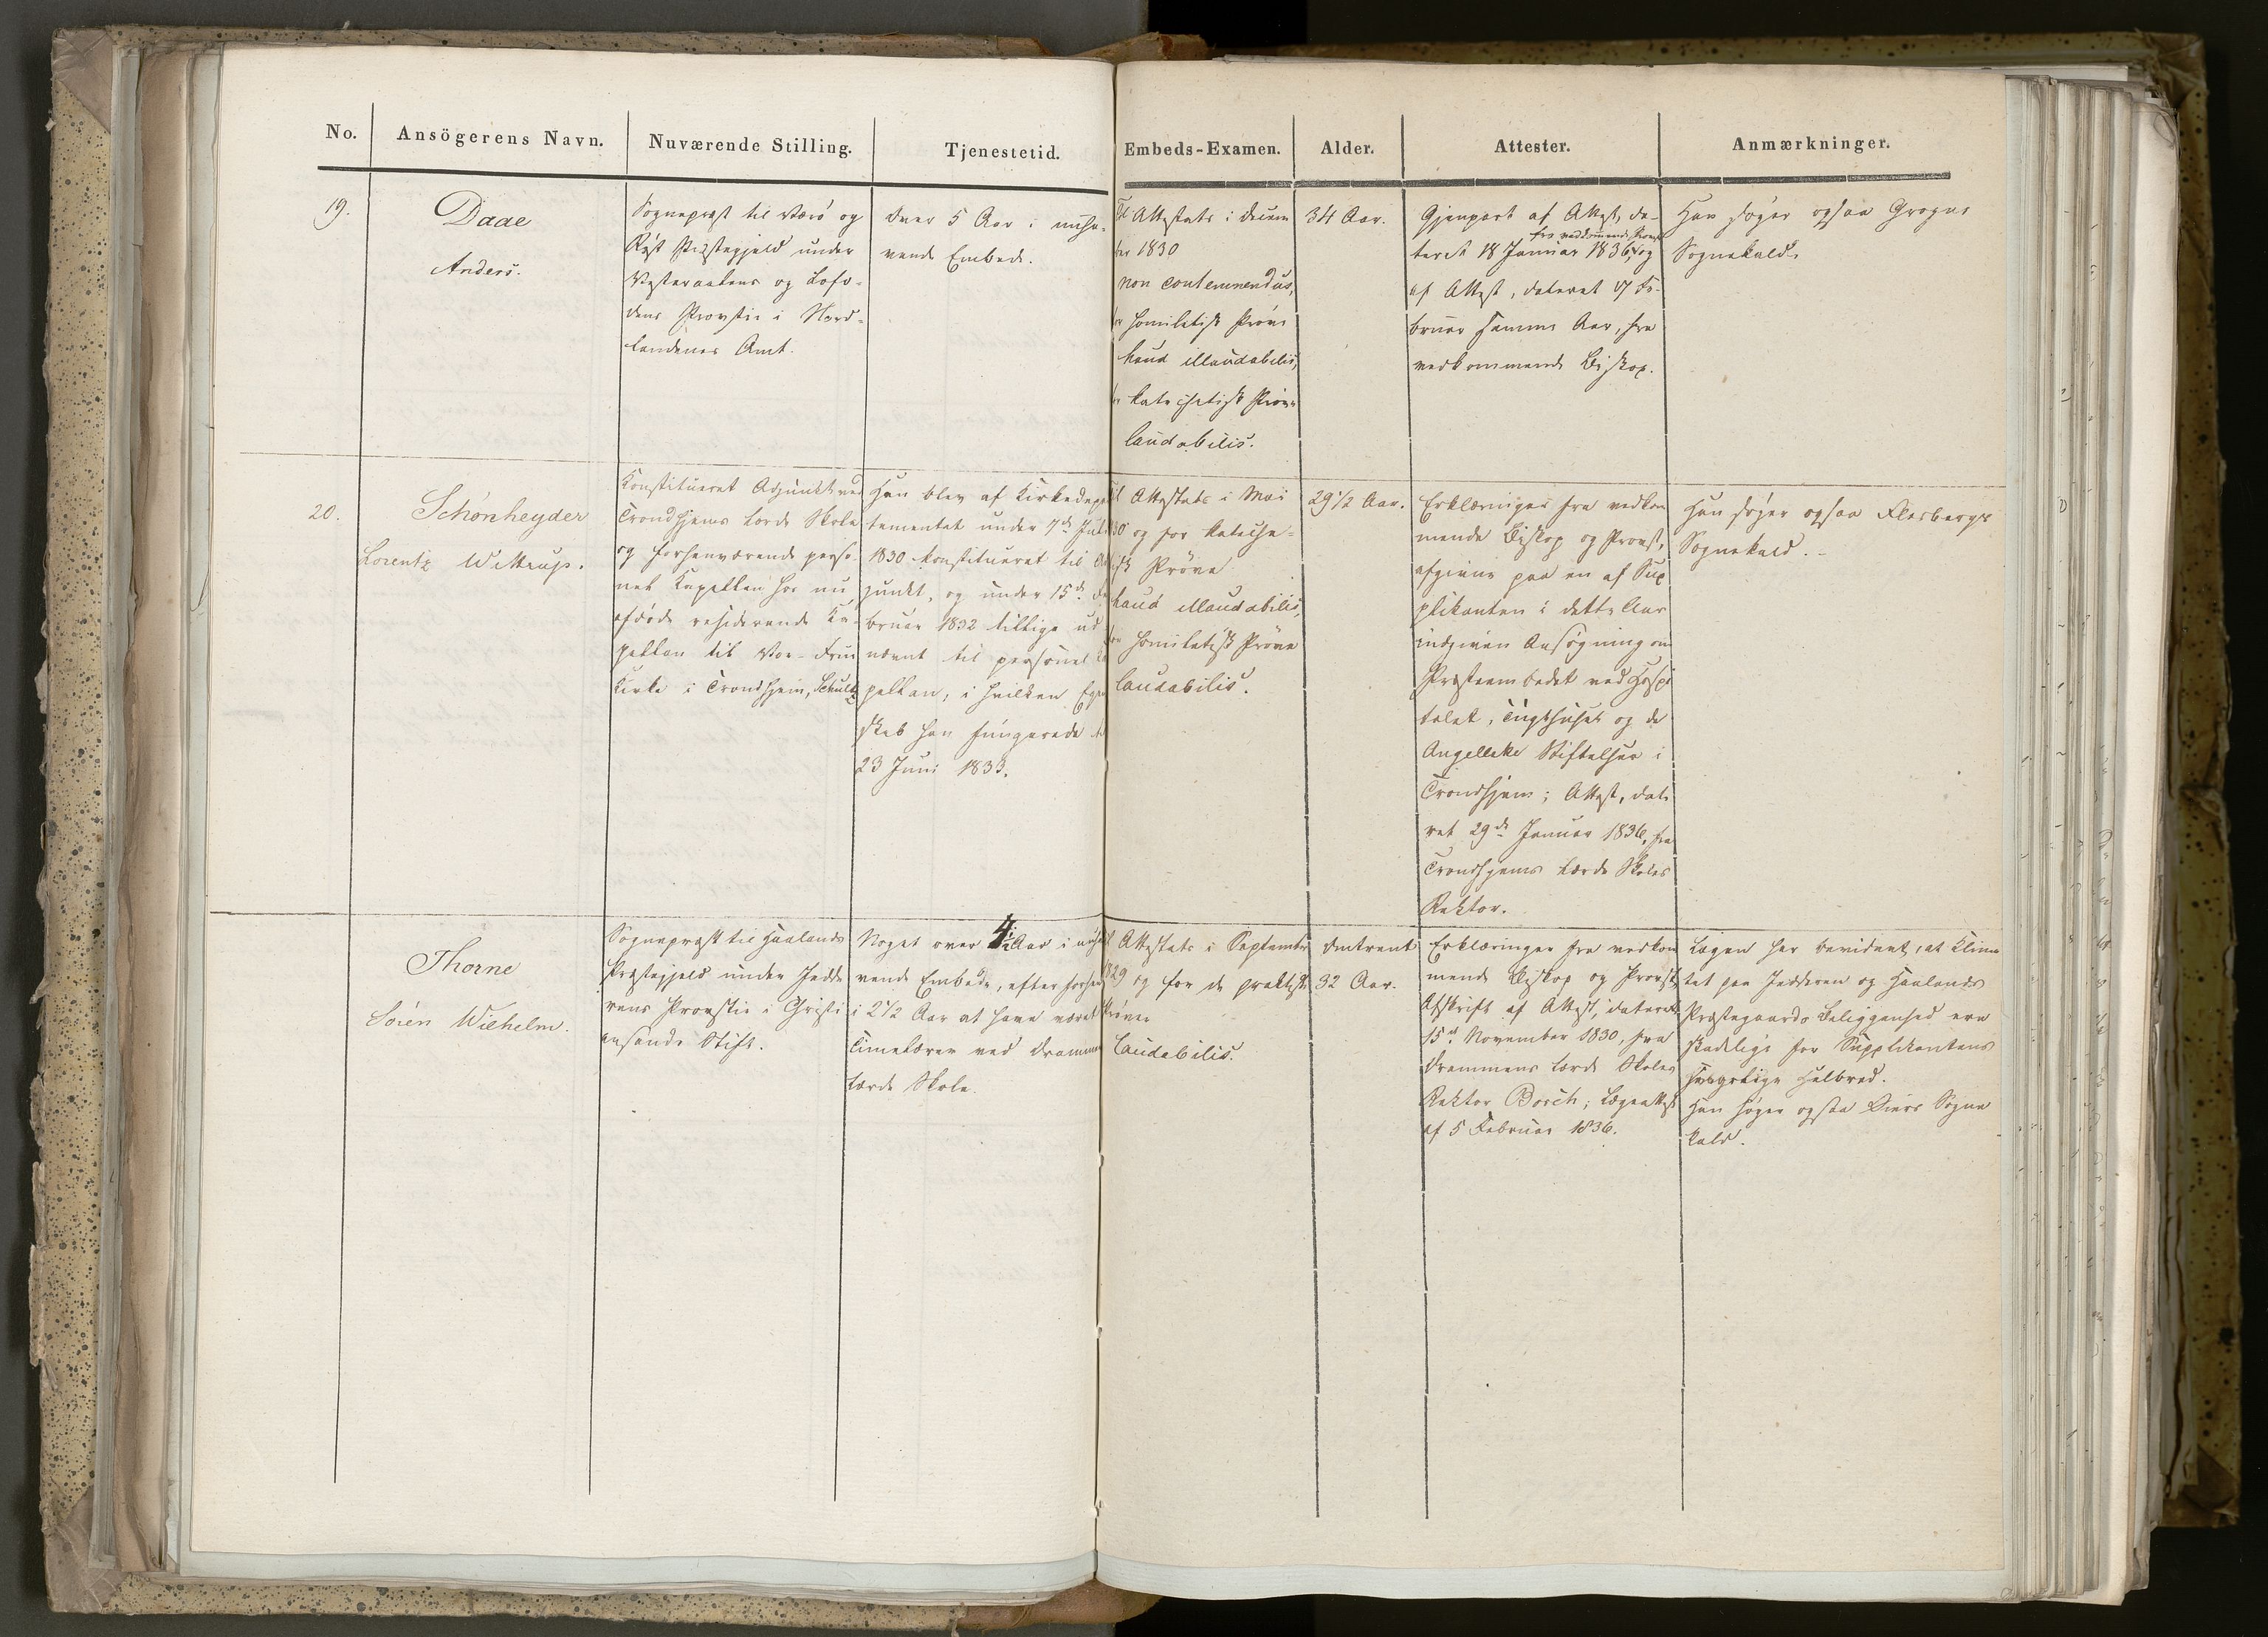 No.
Ansögerens Navn.
Nuværende Stilling.
Tjenestetid.
Embeds-Examen.
Alder.
Attester.
Anmærkninger.
19.
Daae
Anders.
Sognepræst til Værö og
Röst Præstegjeld under
Vesteraalens og Lofo-
dens Provstie i Nord-
landenes Amt.
Over 5 Aar i nuhæ-
vende Embede.
Til Attestats i Decem
ber 1830
non contemnendus,
for homiletisk Pröve
haud illaudabilis,
for katechetisk Pröve
laudabilis.
34 Aar.
Gjenpart af Attest, da-
fra vedkommende Provst
teret 18 Januar 1836, og
af Attest, dateret 17 Fe-
bruar samme Aar, fra
vedkommende Biskop.
Han söger ogsaa Grogns
Sognekald.
20.
Schönheyder
Lorentz Wittrup.
Konstitueret Adjunkt ved
Trondhjems lærde Skole
og forhenværende perso-
nel Kapellan hos nu
afdöde residerende Ka-
pellan til Vor-Frue
Kirke i Trondhjem, Schultz
Han blev af Kirkedepar
tementet under 7de Juli
1830 konstitueret til Ad
junkt, og under 15de Fe
bruar 1832 tillige ud
nævnt til personel Ka
pellan, i hvilken Egen
skab han fungerede til
23 Juni 1833.
Til Attestats i Mai
30 og for kateche-
tisk Pröve
haud illaudabilis,
for homiletisk Pröve
laudabilis.
29 1/2 Aar.
Erklæringer fra vedkom
mende Biskop og Provst,
afgivne paa en af Sup
plikanten i dette Aar
indgiven Ansögning om
Præsteembedet ved Hospi
talet, Tugthuset og de
Angellske Stiftelser i
Trondhjem; Attest, date
ret 29de Januar 1836, fra
Trondhjems lærde Skoles
Rektor.
Han söger ogsaa Flesbergs
Sognekald. -
Thorne
Sören Wilhelm.
Sognepræst til Haalands
Præstegjeld under Jædde
rens Provstie i Christi
ansands Stift.
Noget over 4 Aar i nuhæ
vende Embede, efter forhen
i 2 1/2 Aar at have været
Timelærer ved Drammens
lærde Skole.
Til Attestats i September
1829 og for de praktiske
Pröver
laudabilis.
Omtrent
32 Aar.
Erklæringer fra vedkom
mende Biskop og Provst;
Afskrift af Attest, dateret
15de November 1830, fra
Drammens lærde Skoles
Rektor Borch; Lægeattest
af 5 Februar 1836.
Lægen har bevidnet, at Klima
tet paa Jædderen og Haalands
Præstegaards Beliggenhed ere
skadelige for Supplikantens
svagelige Helbred.
Han söger ogsaa Eiers Sogne
kald.